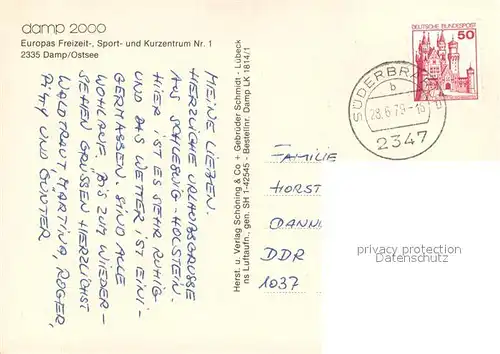 damp 2000
Europas Freizeit-, Sport- und Kurzentrum Nr. 1
2335 Damp/Ostsee
MEINE LIEBEN.
HERZLICHE URLAUBSGRÜSSE
AUS SCHLESWIG-HOLSTEIN.
HIER IST ES SEHR RUHIG
UND DAS WETTER IST EINI-
GERMASSEN. SIND ALLE
WOHLAUF. BIS ZUM WIEDER-
SEHEN GRÜSSEN HERZLICHST
WALDTRAUT, MARTINA, ROGER,
UND GÜNTER
Herst. u. Verlag Schöning & Co + Gebrüder Schmidt - Lübeck
ns Luftaufn., gen. SH 1-42545 - Bestellnr. Damp LK 1814/1
DEUTSCHE BUNDESPOST
50
SÜDERBRA
b
28.6.79-18
2347
FAMILIE
HORST
DANN
DDR
1037
privacy protection
Datenschutz